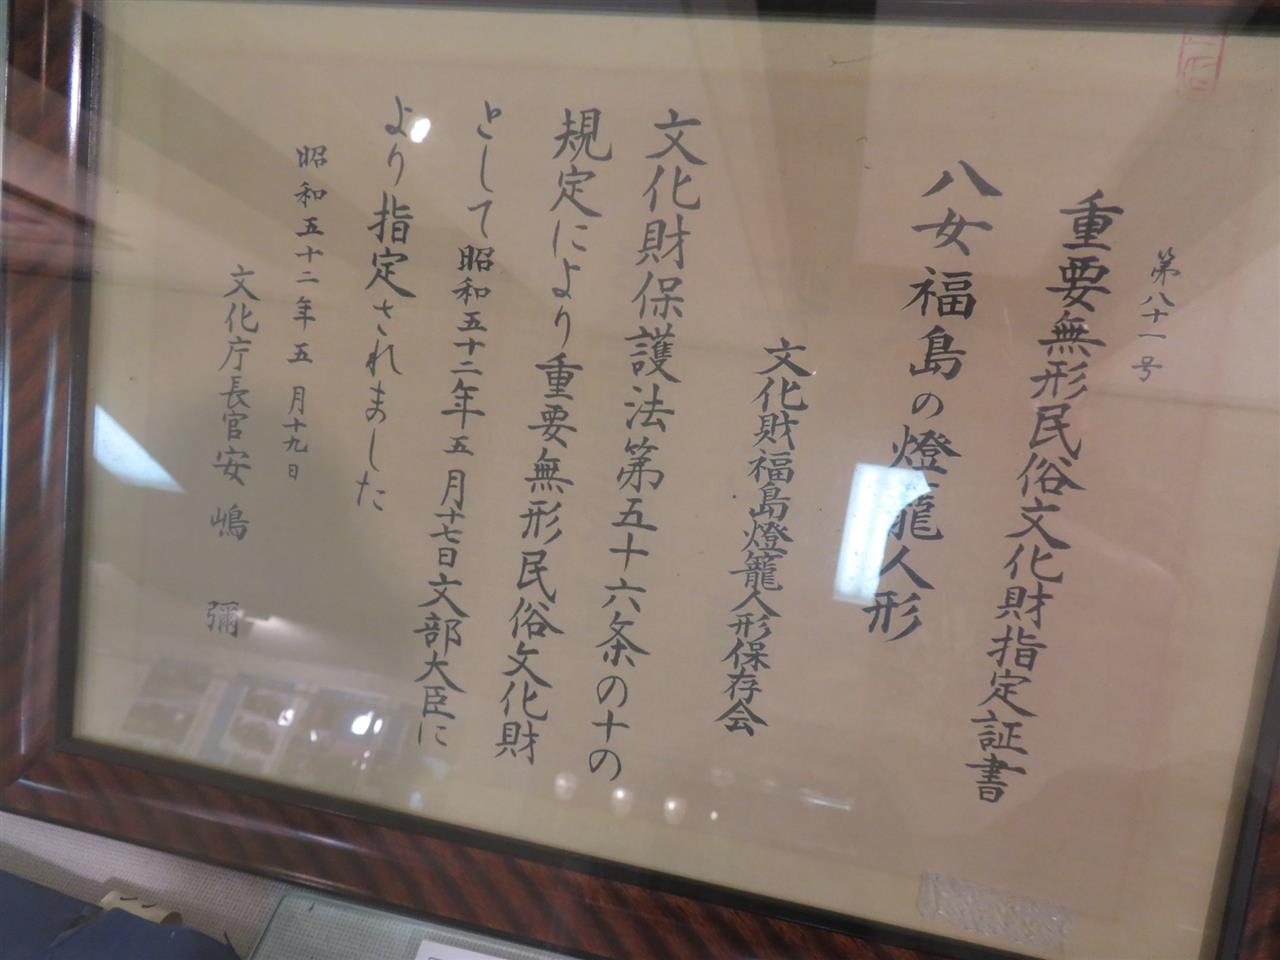 第八十一号
重要無形民俗文化財指定証書
八女福島の燈籠人形
文化財福島燈籠人形保存会
文化財保護法第五十六条の十の
規定により重要無形民俗文化財
として昭和五十二年五月十七日文部大臣に
より指定されました
昭和五十二年五月十九日
文化庁長官安嶋彌